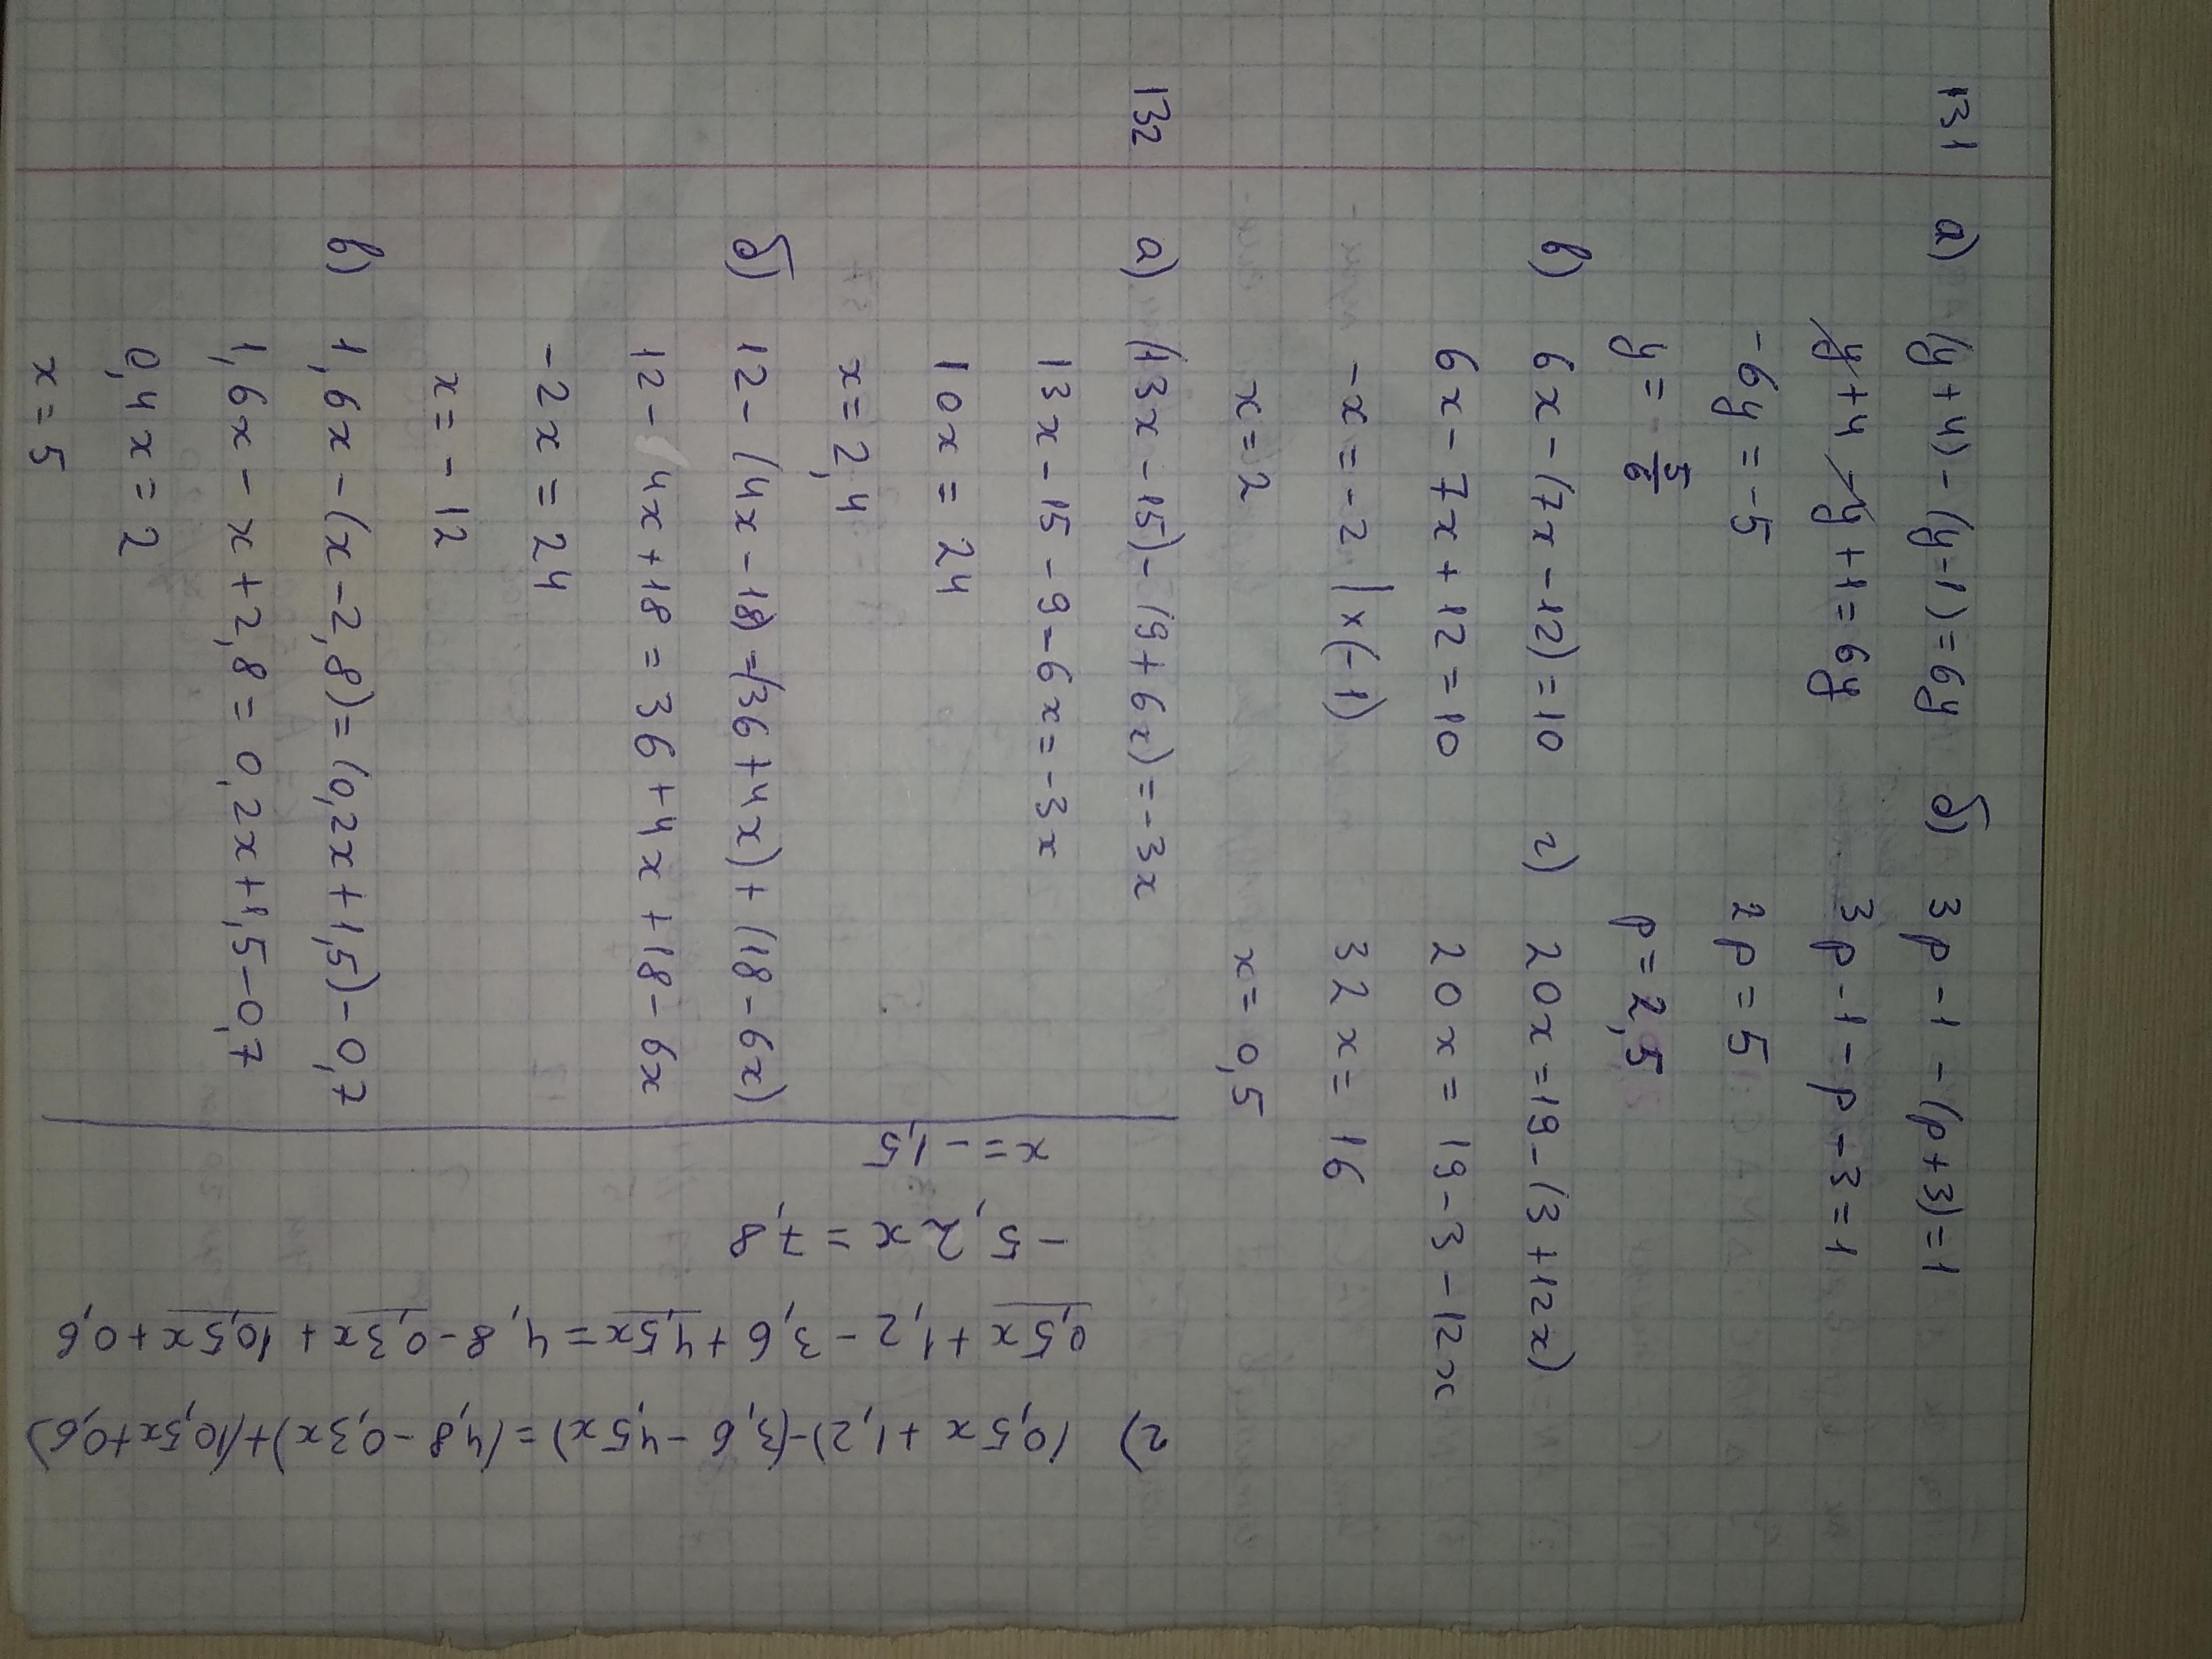 131 а) (y+4)-(y-1)=6y б) 3p-1-(p+3)=1
y+4-y+1=6y 3p-1-p-3=1
-6y=-5 2p=5
y=5/6 p=2,5
в) 6x-(7x-12)=10 г) 20x=19-(3+12x)
6x-7x+12=10 20x=19-3-12x
-x=-2 |×(-1) 32x=16
x=2 x=0,5
132 а) (13x-15)-(9+6x)=-3x
13x-15-9-6x=-3x
10x=24
x=2,4
б) 12-(4x-18)=(36+4x)+(18-6x)
12-4x+18=36+4x+18-6x
-2x=24
x=-12
в) 1,6x-(x-2,8)=(0,2x+1,5)-0,7
1,6x-x+2,8=0,2x+1,5-0,7
0,4x=2
x=5
г) (0,5x+1,2)-(3,6-4,5x)=(4,8-0,3x)+(10,5x+0,6)
0,5x+1,2-3,6+4,5x=4,8-0,3x+10,5x+0,6
-5,2x=7,8
x=-1,5